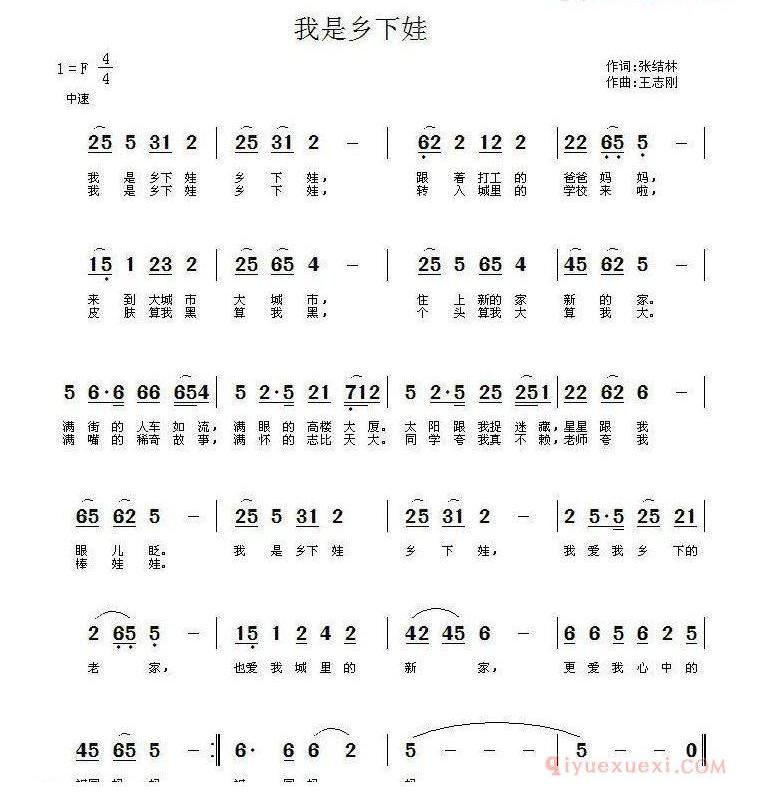 我是乡下娃
1=F 4/4
作词:张结林
作曲:王志刚
中速
25 5 31 2 | 25 31 2 － | 62 2 12 2 | 22 65 5 － |
我 是 乡下 娃 乡 下 娃， 跟 着 打工 的 爸爸 妈 妈，
我 是 乡下 娃 乡 下 娃， 转 入 城里 的 学校 来 啦，
15 1 23 2 | 25 65 4 － | 25 5 65 4 | 45 62 5 － |
来 到 大城 市 大 城 市， 住 上 新的 家 新 的 家。
皮 肤 算我 黑 算 我 黑， 个 头 算我 大 算 我 大。
5 6·6 66 654 | 5 2·5 21 712 | 2 2·5 25 251 | 22 62 6 － |
满 街 的 人车 如 流，满 眼 的 高楼 大 厦。太 阳 跟 我捉 迷 藏，星星 跟 我
满 嘴 的 稀奇 故 事，满 怀 的 志比 天 大。同 学 夸 我真 不 赖，老师 夸 我
65 62 5 － | 25 5 31 2 | 25 31 2 － | 2 5·5 25 21 |
眼 儿 眨。 我 是 乡下 娃 乡 下 娃， 我 爱 我 乡 下的
棒 娃 娃。
2 65 5 － | 15 1 2 4 2 | 42 45 6 － | 6 6 5 6 2 5 |
老 家， 也爱 我 城 里 的 新 家， 更 爱 我 心 中 的
45 65 5 － :‖ 6· 6 6 2 | 5 － － － | 5 － － 0 ‖
qiyuexuexi.com